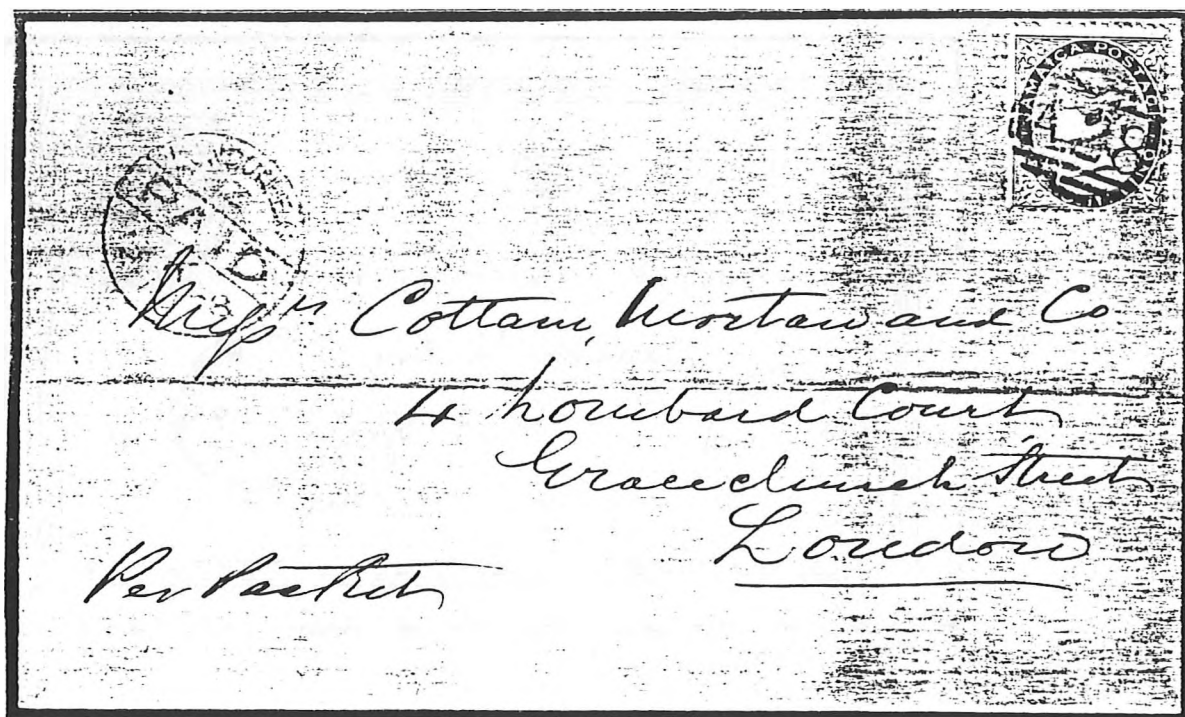 JAMAICA POSTAGE
PAID
Messrs Cottam, Mortan and Co
4 Lombard Court
Gracechurch Street
London
Per Packet